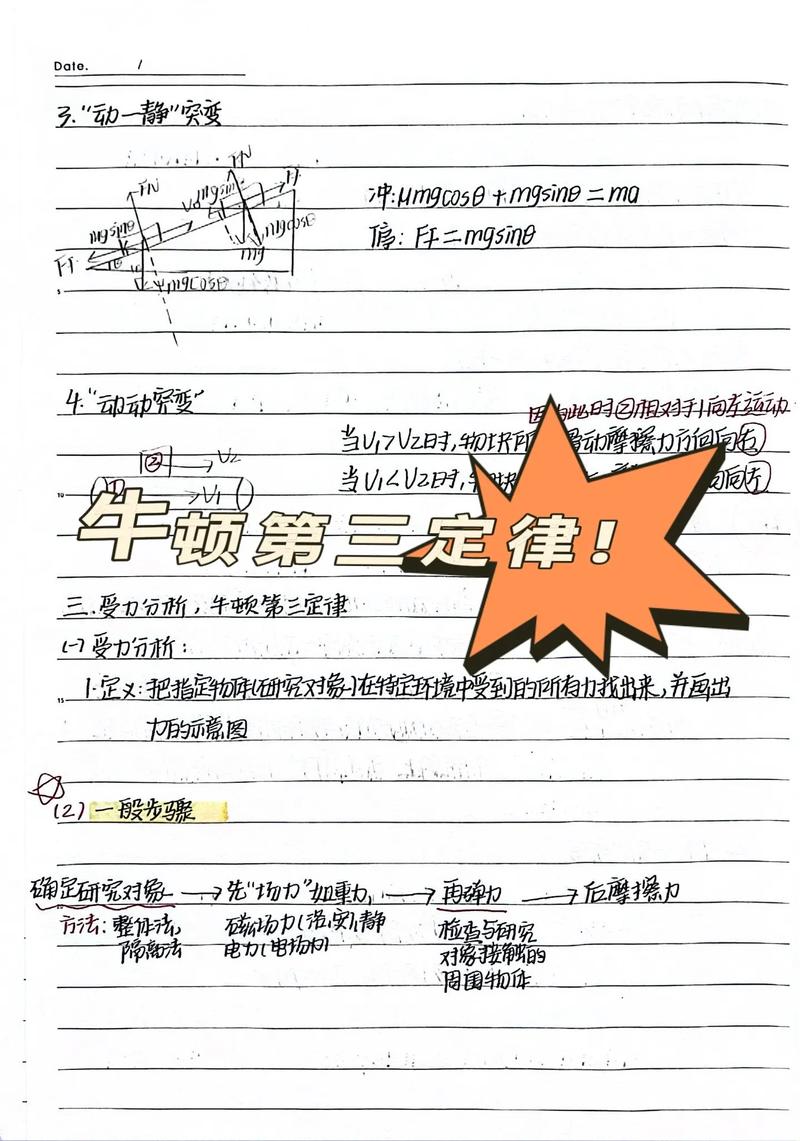 Date. /
3."动—静"突变
FN
FN
Ff
mgsinθ
V0
mgsinθ
mgcosθ
mg
Ff
θ
mgcosθ
冲:μmgcosθ+mgsinθ=ma
停: Ff=mgsinθ
5
4."动动突变"
此时②相对于1向左运动
当V1>V2时,物块所 动摩擦力方向向右
② V2
当V1<V2时,物 向向左
10
① V1
牛顿第三定律!
三.受力分析,牛顿第三定律
(一)受力分析:
15
1.定义:把指定物体(研究对象)在特定环境中受到的所有力找出来,并画出
力的示意图
(2)一般步骤
确定研究对象→先"场力"如重力,→再弹力→后摩擦力
方法:整体法,
隔离法
磁场力(洛,安),静
电力(电场力)
检查与研究
对象接触的
周围物体